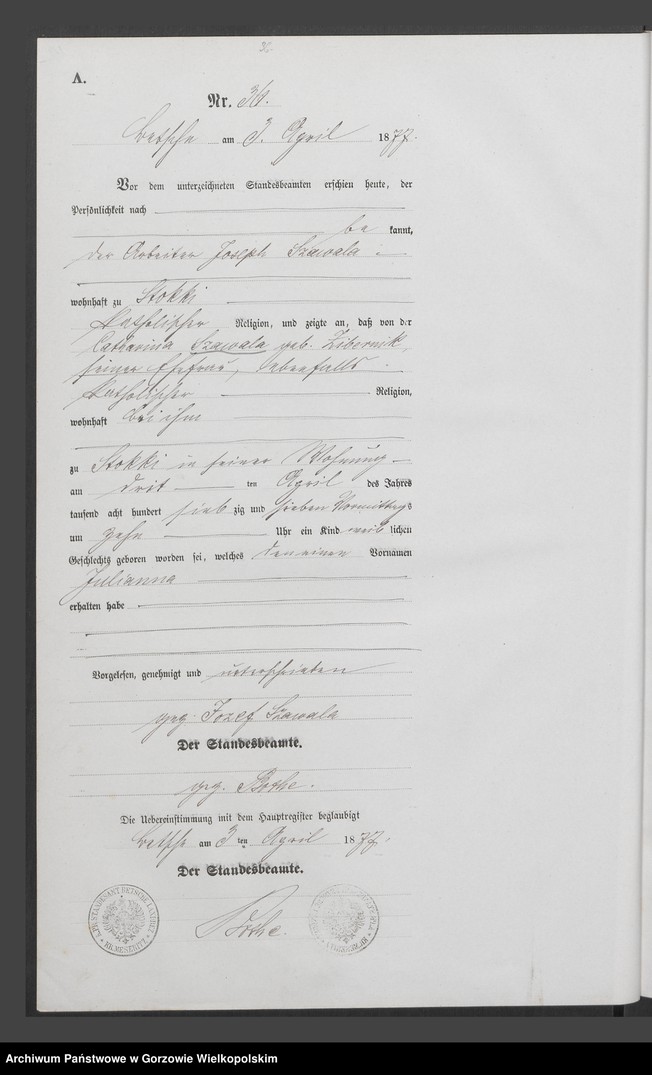 A.
Nr. 36.
Betsche am 3. April 1877.
Vor dem unterzeichneten Standesbeamten erschien heute, der
Persönlichkeit nach
be kannt,
der Arbeiter Joseph Szawala
wohnhaft zu Stokki
katholischer Religion, und zeigte an, daß von der
Catharina Szawala geb. Zibernik,
seiner Ehefrau, ebenfalls
katholischer Religion,
wohnhaft bei ihm
zu Stokki in seiner Wohnung
am dritten April des Jahres
tausend acht hundert siebzig und sieben Vormittags
um zehn Uhr ein Kind weiblichen
Geschlechts geboren worden sei, welches den einen Vornamen
Julianna
erhalten habe
Vorgelesen, genehmigt und unterschrieben
gez. Jozef Szawala
Der Standesbeamte.
gez. Bothe.
Die Uebereinstimmung mit dem Hauptregister beglaubigt
Betsche am 3ten April 1877.
Der Standesbeamte.
Bothe.
STANDESAMT BETSCHE
KR. MESERITZ
Archiwum Państwowe w Gorzowie Wielkopolskim